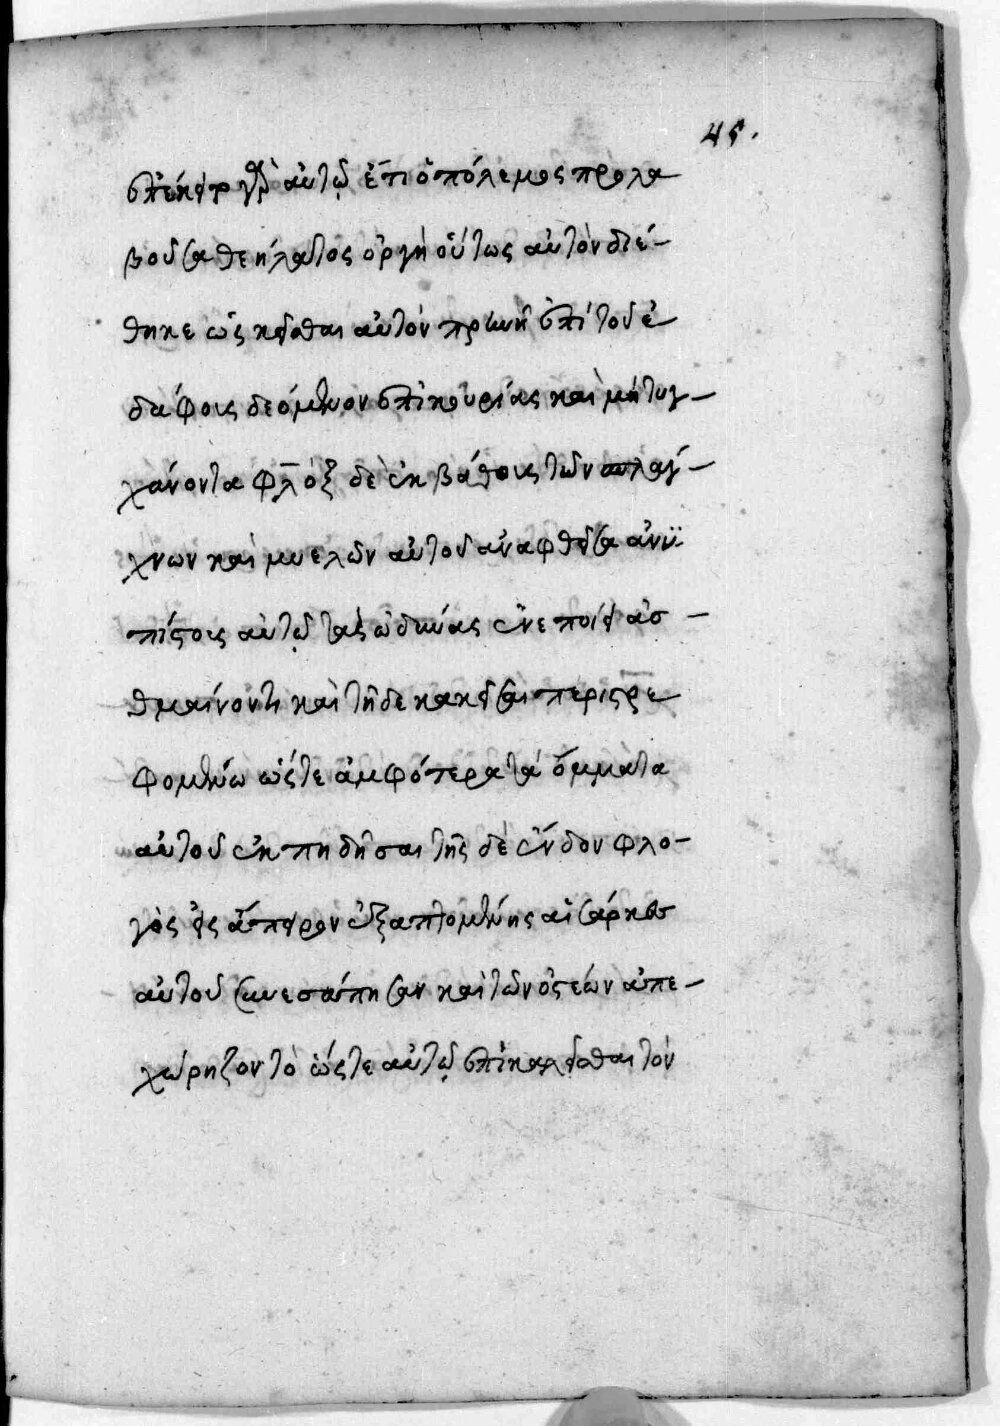 45.
ἐπέκειτο γὰρ αὐτῷ ἔτι ὁ πόλεμος προλα
βοῦσα θεήλατος ὀργὴ οὕτως αὐτὸν διέ-
θηκε ὡς κεῖσθαι αὐτὸν πρινῆ ἐπὶ τοῦ ἐ
δάφους δεόμενον ἐπικουρίας καὶ μὴ τυγ-
χάνοντα φλὸξ δὲ ἐκ βάθους τῶν σπλαγ-
χνων καὶ μυελῶν αὐτοῦ ἀναφθεῖσα ἀνϋ
ποίστους αὐτῷ τὰς ὀδύνας ἐνεποίει ἀσ-
θμαίνοντι καὶ τῇδε κακεῖσαι περιστρε
φομένω ὥστε ἀμφότερα τὰ ὄμματα
αὐτοῦ ἐκπηδῆσαι τῆς δὲ ἔνδον φλο-
γὸς εἰς ἄπειρον ἐξαπτομένης αἱ σάρκες
αὐτοῦ συνεσάπησαν καὶ τῶν ὀστέων ἀπε-
χώρηζον τὸ ὥστε αὐτῷ ἐπικαλεῖσθαι τὸν